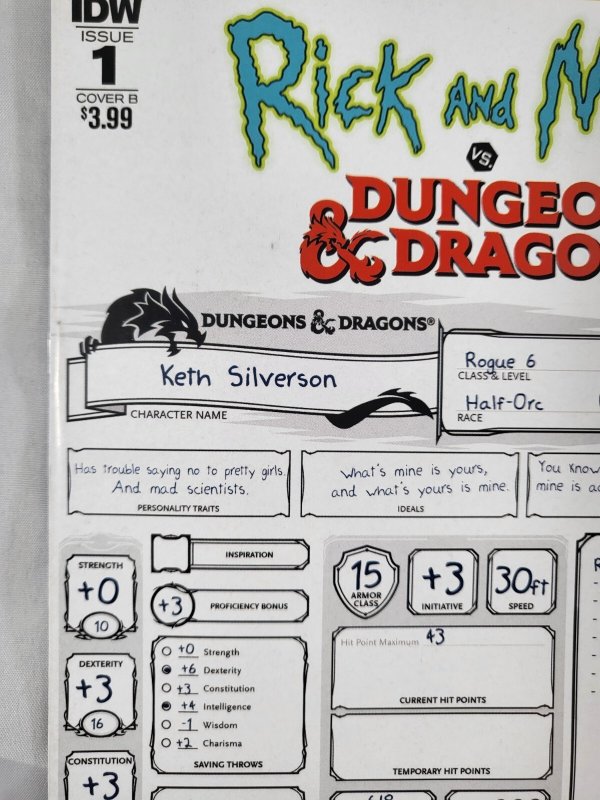 IDW
ISSUE
1
COVER B
$3.99
RICK AND
VS.
DUNGEO
& DRAGO
DUNGEONS & DRAGONS®
Keth Silverson
CHARACTER NAME
Rogue 6
CLASS & LEVEL
Half-Orc
RACE
Has trouble saying no to pretty girls.
And mad scientists.
PERSONALITY TRAITS
What's mine is yours,
and what's yours is mine.
IDEALS
You know
mine is
STRENGTH
+0
10
DEXTERITY
+3
16
CONSTITUTION
+3
INSPIRATION
+3 PROFICIENCY BONUS
+0 Strength
+6 Dexterity
+3 Constitution
+4 Intelligence
-1 Wisdom
+2 Charisma
SAVING THROWS
15
ARMOR
CLASS
+3
INITIATIVE
30ft
SPEED
Hit Point Maximum 43
CURRENT HIT POINTS
TEMPORARY HIT POINTS